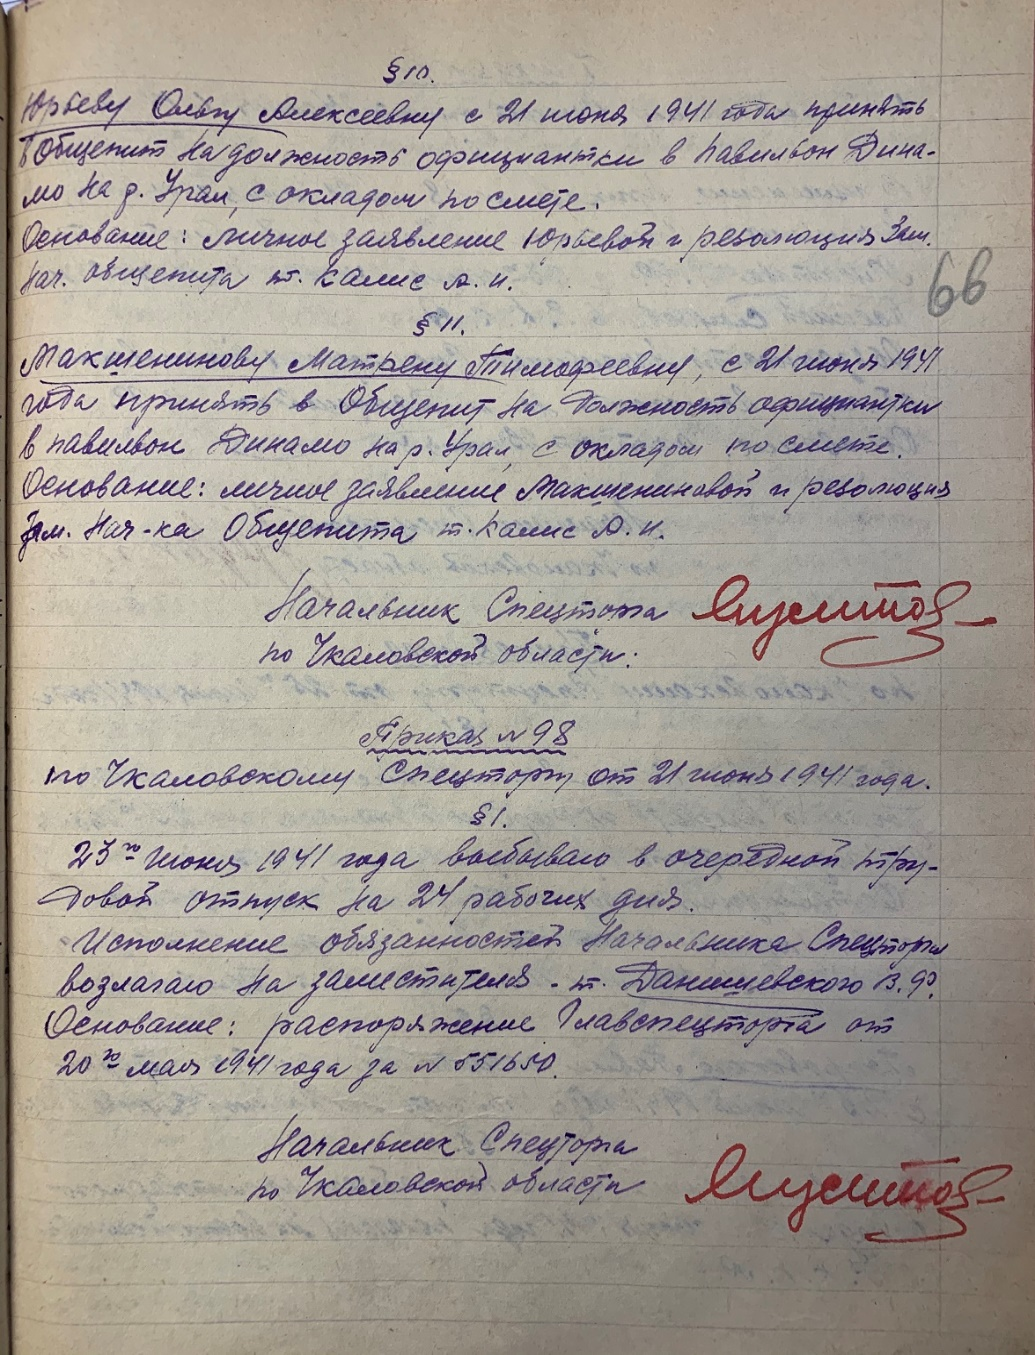 § 10.
Юрьеву Ольгу Алексеевну с 21 июня 1941 года принять
в Общепит на должность официантки в павильон Дина-
мо на р. Урал, с окладом по смете.
Основание: личное заявление Юрьевой и резолюция Зам.
Нач. общепита т. Калис А. И.
66
§ 11.
Макшенинову Матрену Тимофеевну, с 21 июня 1941
года принять в Общепит на должность официантки
в павильон Динамо на р. Урал, с окладом по смете.
Основание: личное заявление Макшениновой и резолюция
Зам. Нач-ка Общепита т. Калис А. И.
Начальник Спецторга
по Чкаловской области:
Приказ № 98
по Чкаловскому Спецторгу от 21 июня 1941 года.
§ 1.
23го июня 1941 года выбываю в очередной тру-
довой отпуск на 24 рабочих дня.
Исполнение обязанностей Начальника Спецторга
возлагаю на заместителя - т. Данишевского В. Ф.
Основание: распоряжение Главспецторга от
20го мая 1941 года за № 551650.
Начальник Спецторга
по Чкаловской области